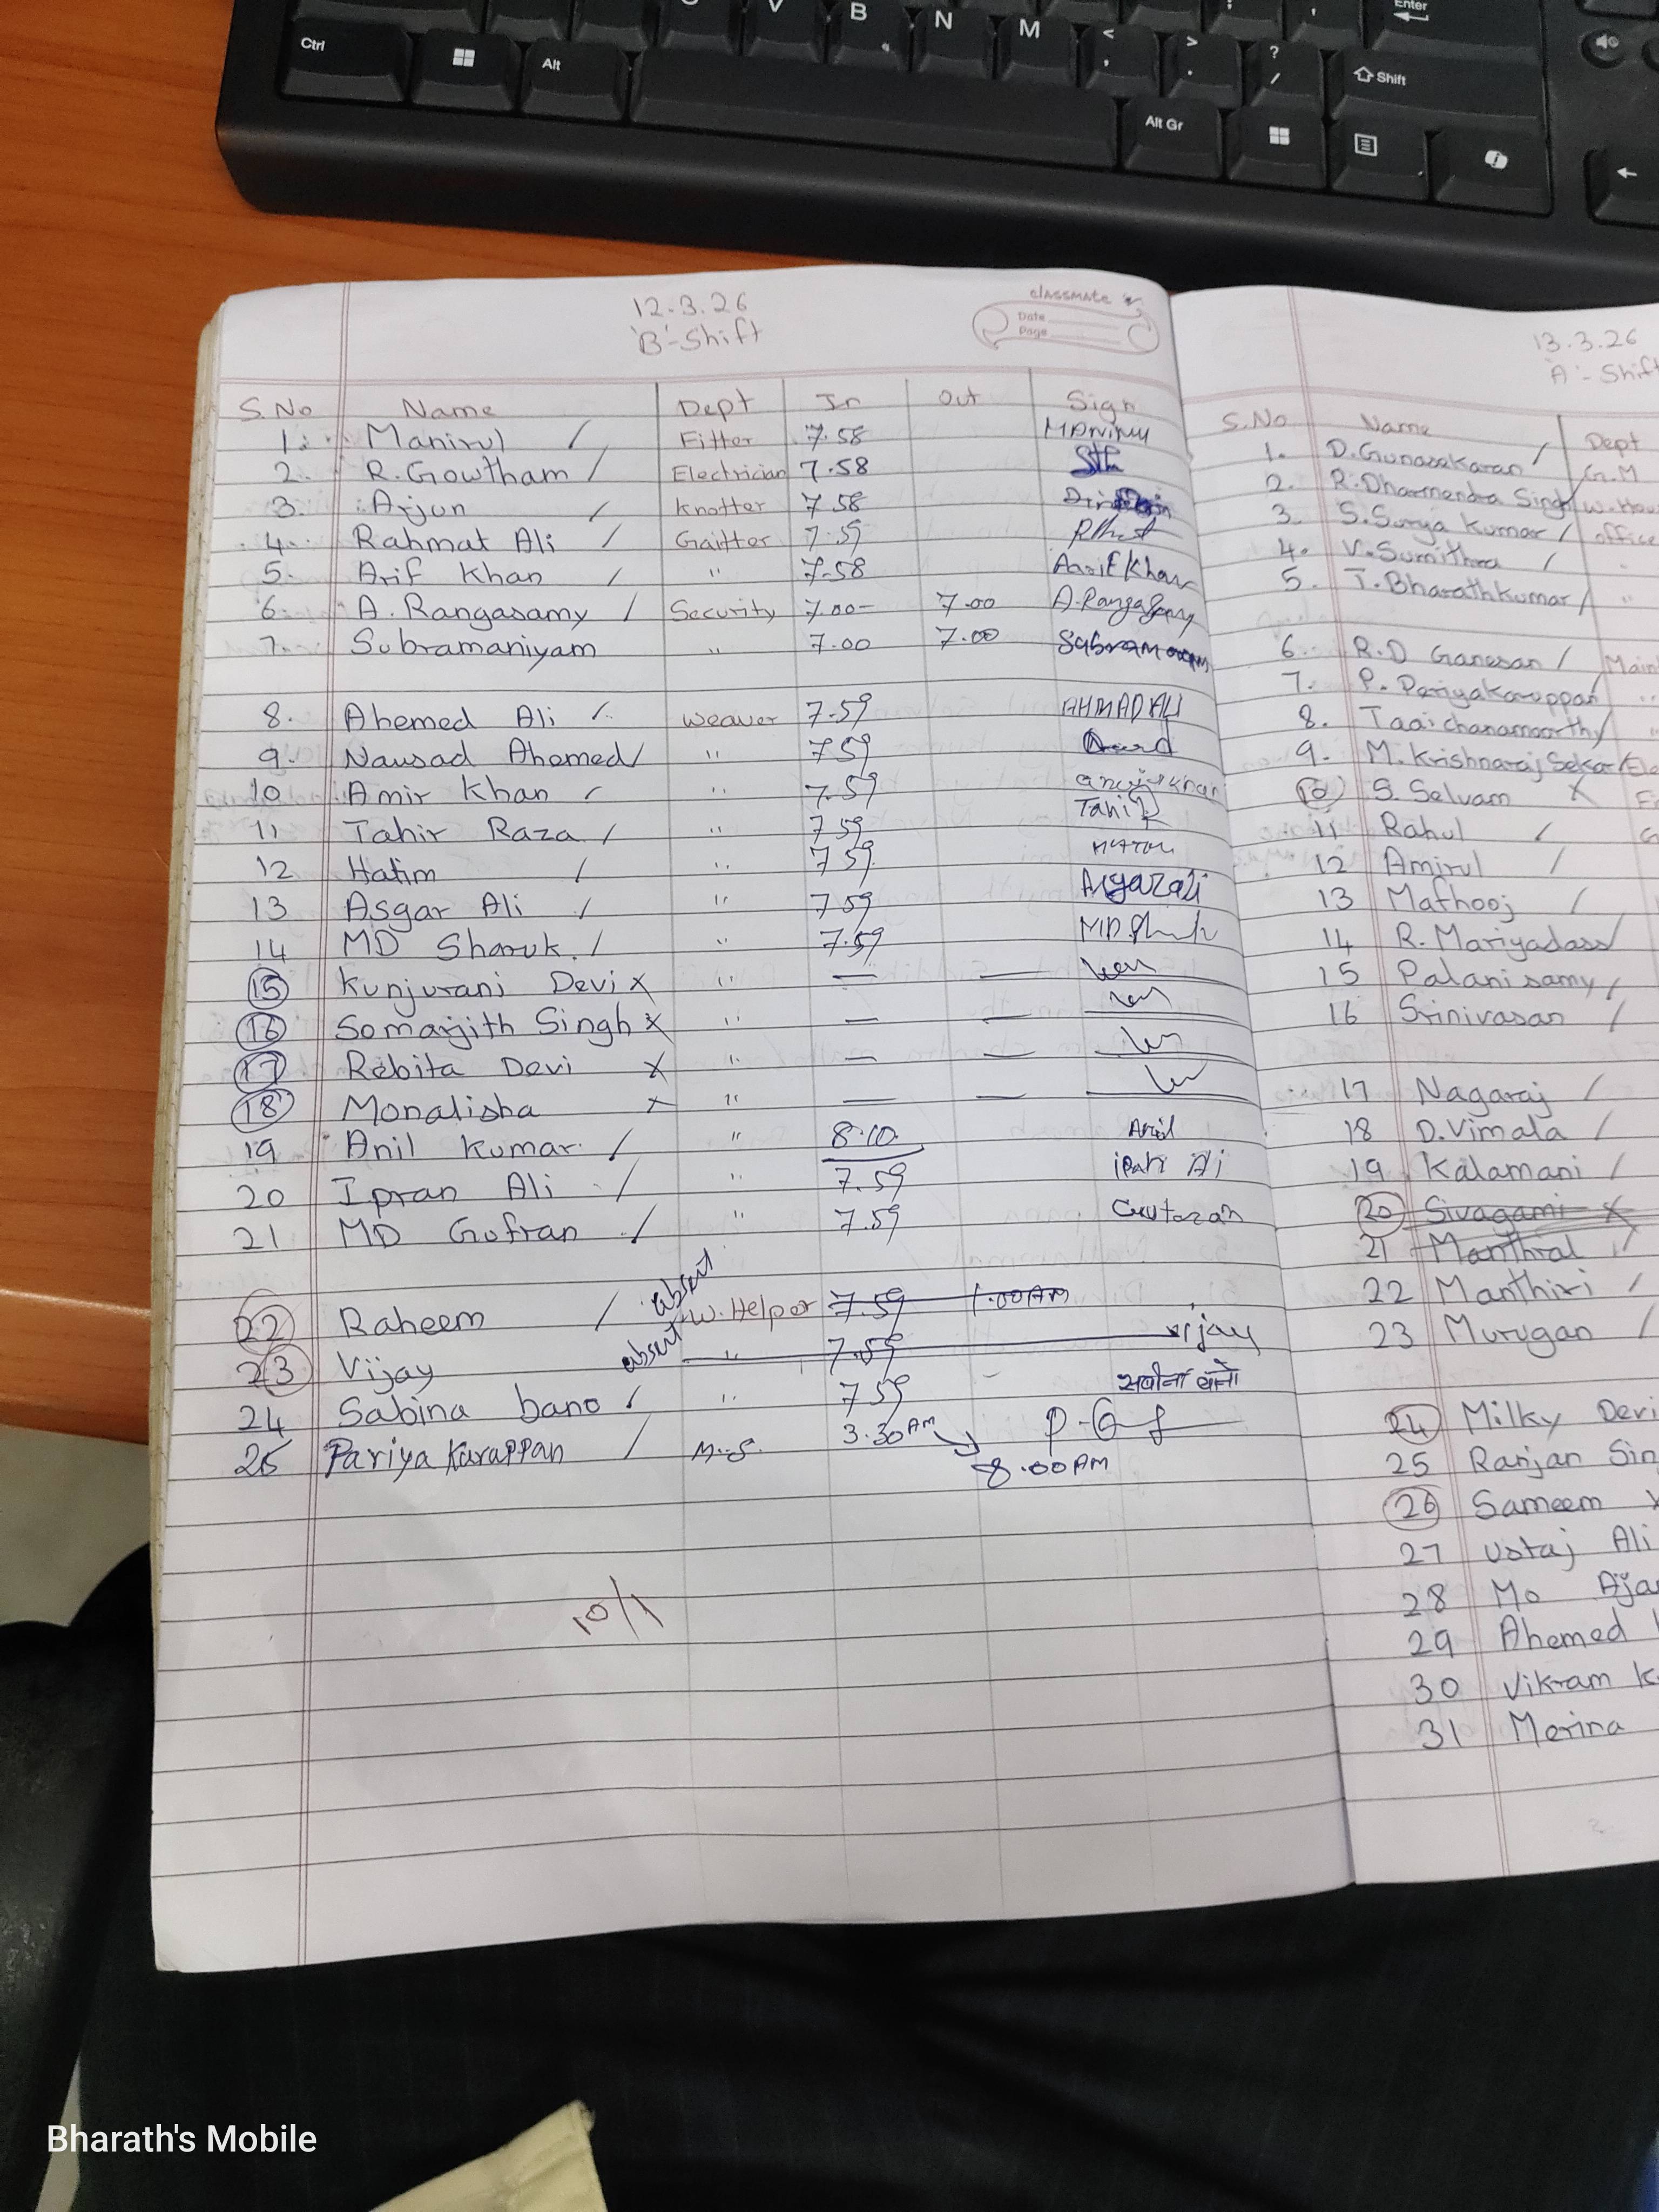 Ctrl
Alt
V
B
N
M
<
,
>
.
?
/
Enter
Shift
Alt Gr
12.3.26
'B'-Shift
classmate
Date
Page
S.No Name Dept In Out Sign
1. Manirul / Fitter 7.58
2. R.Gowtham / Electrician 7.58
3. Arjun / Knotter 7.58
4. Rahmat Ali / Gaitter 7.59
5. Arif Khan / " 7.58 Aarif Khan
6. A. Rangasamy / Security 7.00- 7.00 A.Rangasamy
7. Subramaniyam " 7.00 7.00
8. Ahemed Ali / Weaver 7.59 AHMAD ALI
9. Nausad Ahemed / " 7.59
10 Amir Khan / " 7.59
11 Tahir Raza / " 7.59 Tahir
12 Hatim / " 7.59
13 Asgar Ali / " 7.59 Asgar ali
14 MD Sharuk / " 7.59
15 Kunjurani Devi x " — —
16 Somarjith Singh x " — —
17 Rebita Devi x " — —
18 Monalisha x " — —
19 Anil Kumar / " 8.10 Anil
20 Ipran Ali / " 7.59
21 MD Gufran / " 7.59
22 Raheem / absent W.Helper 7.59 1.00AM
23 Vijay absent " 7.59 vijay
24 Sabina bano / " 7.59 - सबीना बानो
25 Pariya Karappan / 3.30 AM
8.00AM
10/1
13.3.26
'A'- Shift
S.No Name Dept
1. D.Gunasakaran / G.M
2. R.Dharmendra Singh
3. S.Surya Kumar / office
4. V.Sumithra /
5. T.Bharathkumar / "
6. R.D Ganesan /
7. P. Periyakaruppan "
8. Taaichanamoorthy
9. M.KrishnarajSekar
10 S. Selvam x
11 Rahul /
12 Amirul /
13 Mathooj /
14 R. Mariyadass
15 Palanisamy /
16 Srinivasan /
17 Nagaraj /
18 D.Vimala /
19 Kalamani /
20 Sivagami x
21 Manthral
22 Manthiri /
23 Murugan /
24 Milky Devi
25 Ranjan
26 Sameem
27 Ustaj Ali
28 Mo
29 Ahemed
30 Vikram
31 Merina
Bharath's Mobile